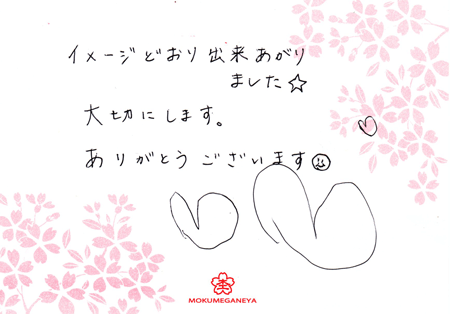 イメージどおり出来あがり
ました☆
大切にします。
ありがとうございます☺
MOKUMEGANEYA